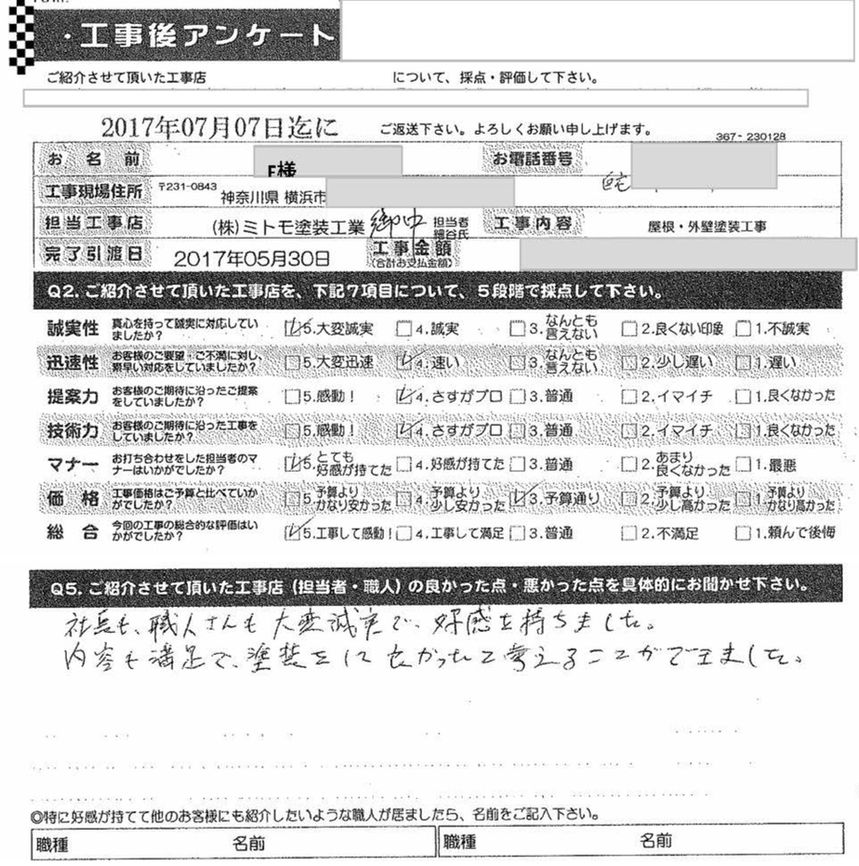 ・工事後アンケート
ご紹介させて頂いた工事店 について、採点・評価して下さい。
2017年07月07日迄に ご返送下さい。よろしくお願い申し上げます。
367-230128
お名前 様 お電話番号
工事現場住所 〒231-0843 神奈川県 横浜市
担当工事店 (株)ミトモ塗装工業 御中 担当者 細谷氏 工事内容 屋根・外壁塗装工事
完了引渡日 2017年05月30日 工事金額 (合計お支払金額)
Q2. ご紹介させて頂いた工事店を、下記7項目について、5段階で採点して下さい。
誠実性 真心を持って誠実に対応していましたか? 5.大変誠実 4.誠実 3.なんとも言えない 2.良くない印象 1.不誠実
迅速性 お客様のご要望・ご不満に対し、素早い対応をしていましたか? 5.大変迅速 4.速い 3.なんとも言えない 2.少し遅い 1.遅い
提案力 お客様のご期待に沿ったご提案をしていましたか? 5.感動! 4.さすがプロ 3.普通 2.イマイチ 1.良くなかった
技術力 お客様のご期待に沿った工事をしていましたか? 5.感動! 4.さすがプロ 3.普通 2.イマイチ 1.良くなかった
マナー お打ち合わせをした担当者のマナーはいかがでしたか? 5.とても好感が持てた 4.好感が持てた 3.普通 2.あまり良くなかった 1.最悪
価格 工事価格はご予算と比べていかがでしたか? 5.予算よりかなり安かった 4.予算より少し安かった 3.予算通り 2.予算より少し高かった 1.予算よりかなり高かった
総合 今回の工事の総合的な評価はいかがでしたか? 5.工事して感動! 4.工事して満足 3.普通 2.不満足 1.頼んで後悔
Q5. ご紹介させて頂いた工事店（担当者・職人）の良かった点・悪かった点を具体的にお聞かせ下さい。
社長も、職人さんも大変誠実で、好感を持ちました。
内容も満足で、塗装をして良かったと考えることができました。
◎特に好感が持てて他のお客様にも紹介したいような職人が居ましたら、名前をご記入下さい。
職種 名前 職種 名前